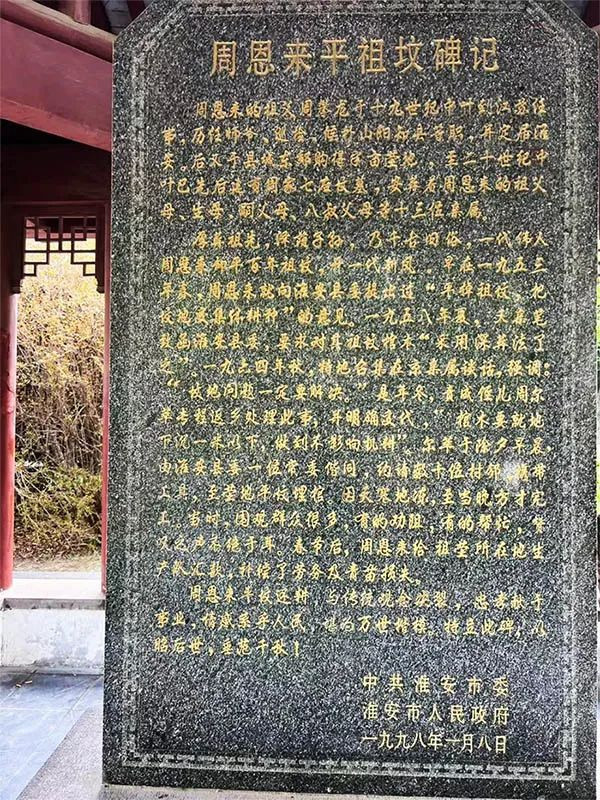 周恩来平祖坟碑记
周恩来的祖父周攀龙于十九世纪中叶到江苏任
事,历任师爷、巡检、候补山阳知县等职,并定居淮
安。后又于县城东郊购得茔地,至二十世纪中
叶已先后建有周家七座坟墓,安葬着周恩来的祖父
母、生母、嗣父母、八叔父母等十三位亲属。
厚葬祖先,保荫子孙,乃千古旧俗,一代伟人
周恩来却平百年祖坟,开一代新风。早在一九五三
年春,周恩来就向淮安县委提出过“平掉祖坟,把
坟地交集体耕种”的意见。一九五八年夏,又亲笔
致函淮安县委,要求对其祖坟棺木“采用深葬法了
之”。一九六四年秋,特地召集在京亲属谈话,强调:
“坟地问题一定要解决。”是年冬,责成侄儿周尔
萃专程返乡处理此事,并明确交代,“棺木要就地
下沉一米以下,做到不影响机耕”。尔萃于除夕早晨,
由淮安县委一位常委偕同,约请数十位村邻,携带
工具,至茔地平坟埋棺,因天寒地冻,至当晚方才完
工。当时,围观群众很多,有的劝阻,有的帮忙,赞
叹之声不绝于耳。春节后,周恩来给祖茔所在地生
产队汇款,补偿了劳务及青苗损失。
周恩来平坟还耕,与传统观念决裂,忠孝献于
事业,情感系乎人民,堪为万世楷模。特立此碑,以
昭后世,垂范千秋!
中共淮安市委
淮安市人民政府
一九九八年一月八日